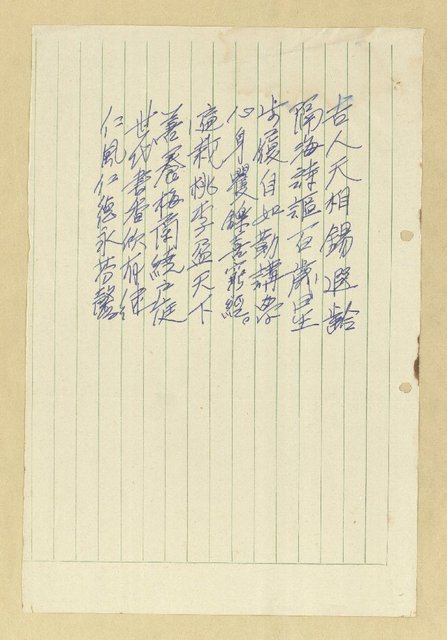 吉人天相錫遐齡
隔海詩謳百歲星
步履自如勤講學
心身矍鑠喜窮經。
廣栽桃李盈天下
善養梅蘭繞戶庭
世代書香欣有繼
仁風仁德永芬馨